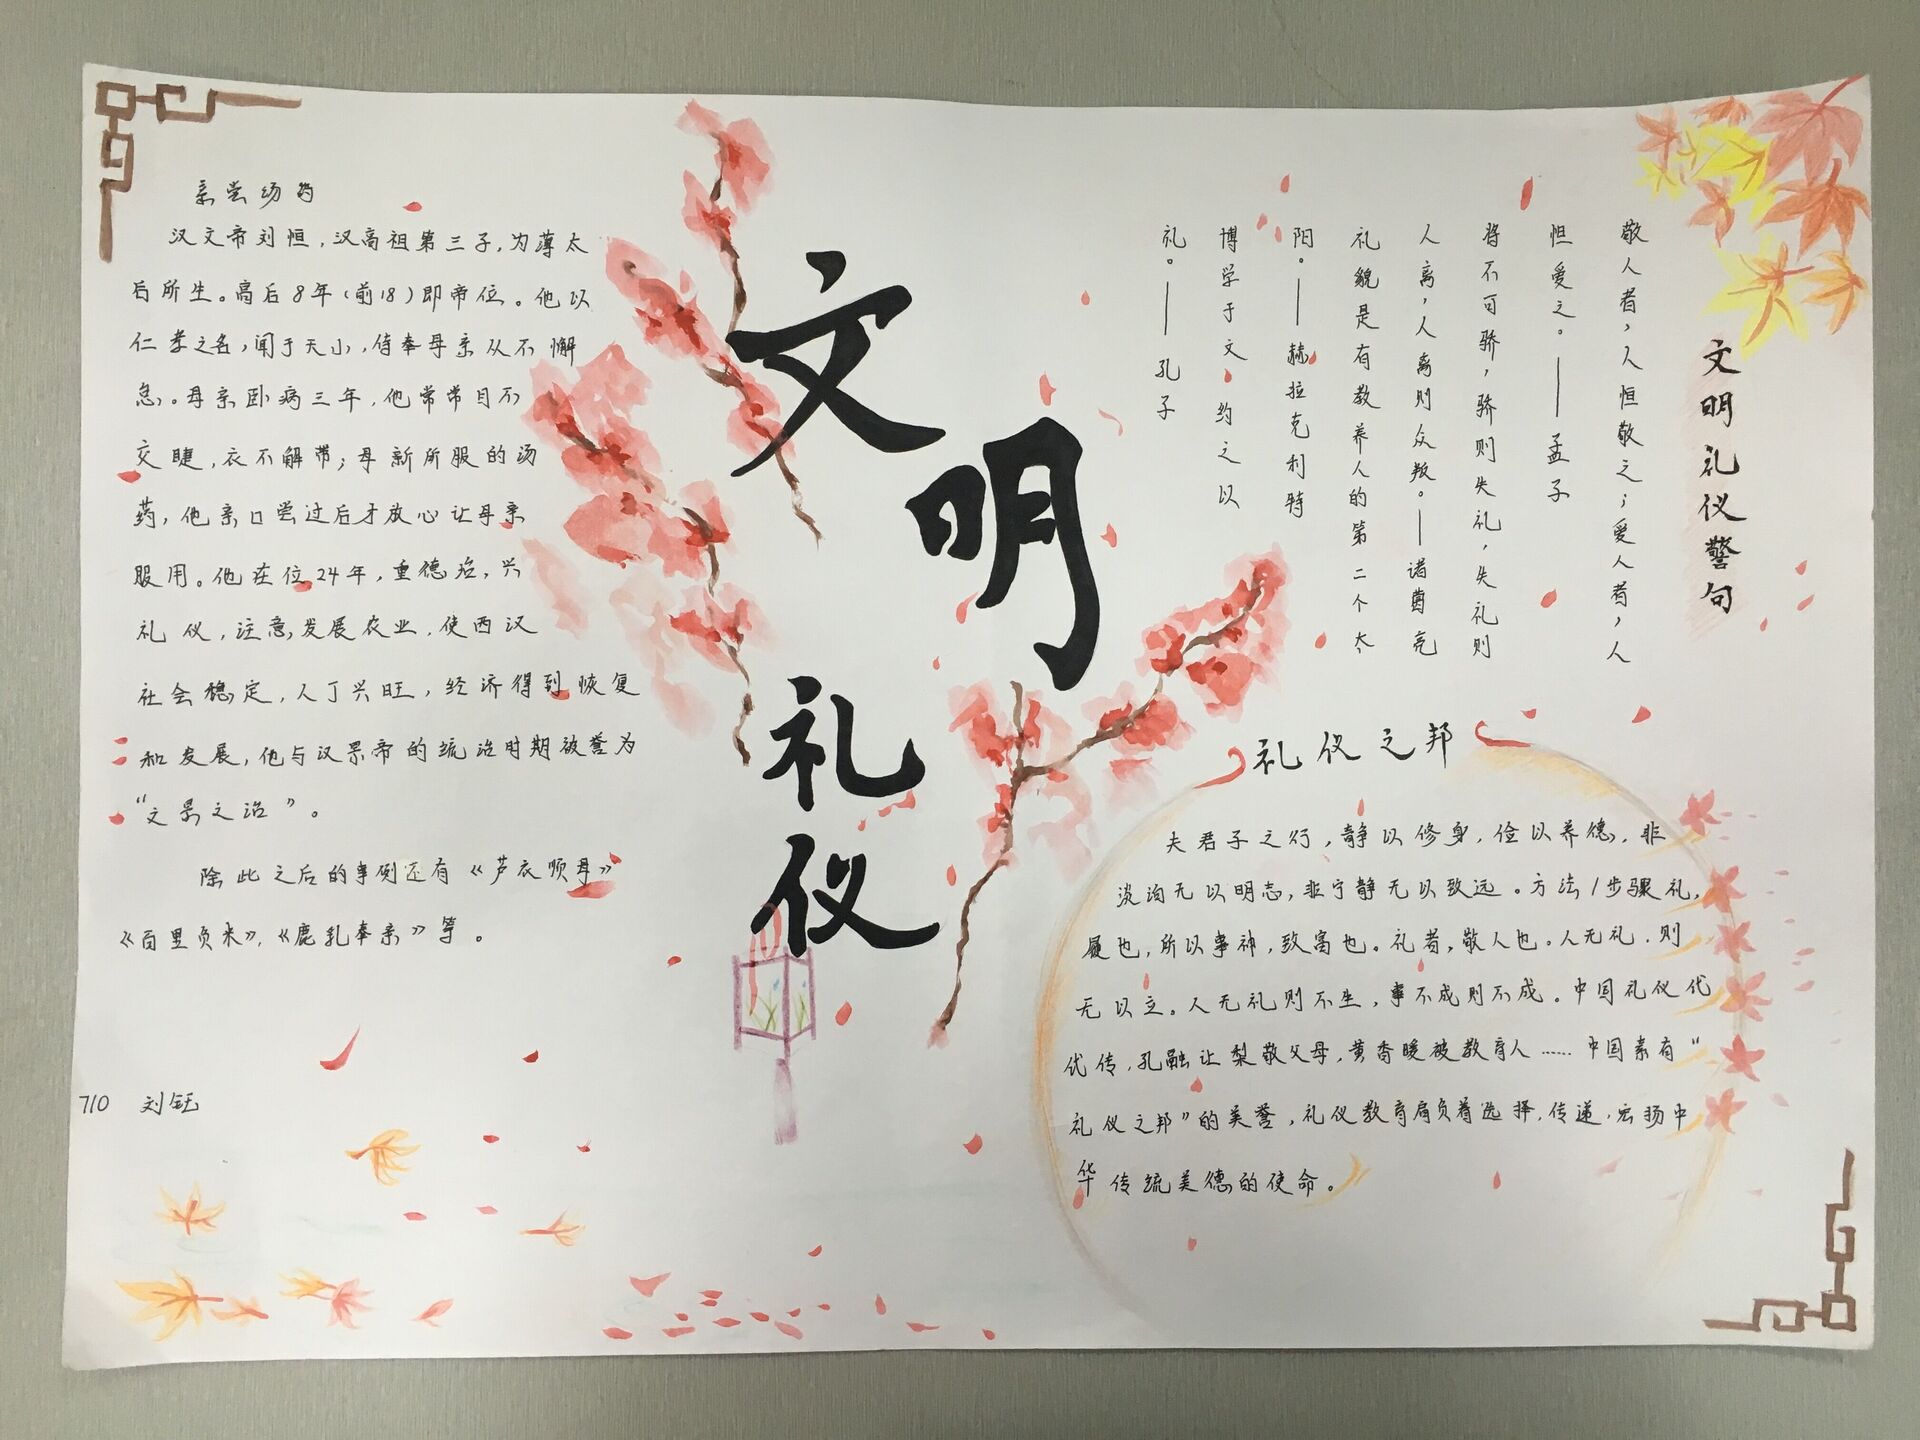 亲尝汤药
汉文帝刘恒，汉高祖第三子，为薄太
后所生。高后8年（前18）即帝位。他以
仁孝之名，闻于天小，侍奉母亲从不懈
怠。母亲卧病三年，他常常目不
交睫，衣不解带；母新所服的汤
药，他亲口尝过后才放心让母亲
服用。他在位24年，重德治，兴
礼仪，注意发展农业，使西汉
社会稳定，人丁兴旺，经济得到恢复
和发展，他与汉景帝的统治时期被誉为
“文景之治”。
除此之后的事例还有《芦衣顺母》
《百里负米》，《鹿乳奉亲》等。
710 刘钰
文明
礼仪
文明礼仪警句
敬人者，人恒敬之；爱人者，人
恒爱之。——孟子
将不可骄，骄则失礼，失礼则
人离，人离则众叛。——诸葛亮
礼貌是有教养人的第二个太
阳。——赫拉克利特
博学于文，约之以
礼。——孔子
礼仪之邦
夫君子之行，静以修身，俭以养德，非
淡泊无以明志，非宁静无以致远。方法/步骤礼，
履也，所以事神，致富也。礼者，敬人也。人无礼，则
无以立。人无礼则不生，事不成则不成。中国礼仪代
代传，孔融让梨敬父母，黄香暖被教育人……中国素有“
礼仪之邦”的美誉，礼仪教育肩负着选择，传递，宏扬中
华传统美德的使命。